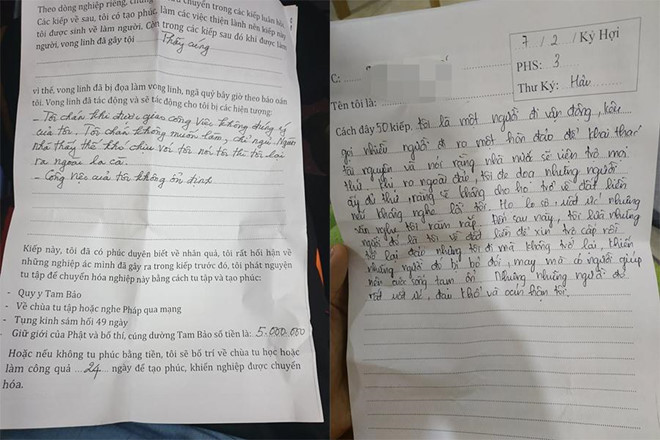 Theo dòng nghiệp riêng, chung
chuyển trong các kiếp luân hồi
Các kiếp về sau, tôi có tạo phúc làm các việc thiện lành nên kiếp này
tôi được sinh về làm người. Còn trong các kiếp sau đó khi được làm
người, vong linh đã gây tội Thầy cúng
vì thế, vong linh đã bị đọa làm vong linh, ngã quỷ bây giờ theo báo oán
tôi. Vong linh đã tác động và sẽ tác động cho tôi bị các hiện tượng:
- Tôi chán khi được giao công việc không đúng ý
của tôi. Tôi chán không muốn làm, chỉ ngủ. Người
nhà thấy thế khó chịu với tôi nói tôi thì tôi lại
ra ngoài la cà.
- Công việc của tôi không ổn định
Kiếp này, tôi đã có phúc duyên biết về nhân quả, tôi rất hối hận về
những nghiệp ác mình đã gây ra trong kiếp trước đó, tôi phát nguyện
tu tập để chuyển hóa nghiệp này bằng cách tu tập và tạo phúc:
- Quy y Tam Bảo
- Về chùa tu tập hoặc nghe Pháp qua mạng
- Tụng kinh sám hối 49 ngày
- Giữ giới của Phật và bố thí, cúng dường Tam Bảo số tiền là: 5.000.000
Hoặc nếu không tu phúc bằng tiền, tôi sẽ bố trí về chùa tu học hoặc
làm công quả 24 ngày để tạo phúc, khiến nghiệp được chuyển
hóa.
7 / 2 / Kỷ Hợi
PHS: 3
Thư Ký: Hải
C:
Tên tôi là:
Cách đây 50 kiếp. tôi là một người đi vận động, kêu
gọi nhiều người đi ra một hòn đảo để khai thác
tài nguyên và nói rằng nhà nước sẽ viện trợ mọi
thứ. Khi ra ngoài đảo, tôi đe dọa những người
ấy đủ thứ, rằng sẽ không cho họ trở về đất liền
nếu không nghe lời tôi. Họ lo sợ, uất ức nhưng
vẫn nghe tôi răm rắp. Đời sau này, tôi lừa những
người đó là tôi về đất liền để xin trợ cấp rồi
trở lại đảo nhưng tôi đi mà không trở lại, khiến
những người đó bị bỏ đói, may mà có người giúp
nên cuộc sống tạm ổn. Nhưng những người đó
rất uất ức, đau khổ và oán hận tôi.